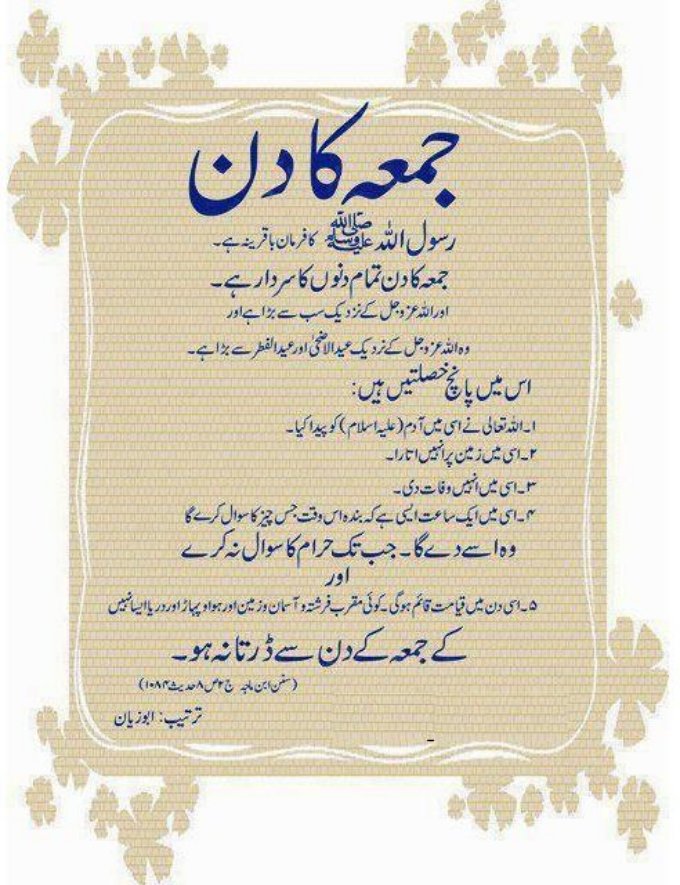 جمعہ کا دن
رسول اللہ ﷺ کا فرمان باقرینہ ہے۔
جمعہ کا دن تمام دنوں کا سردار ہے۔
اور اللہ عزوجل کے نزدیک سب سے بڑا ہے اور
وہ اللہ عزوجل کے نردیک عیدالاضحیٰ اور عیدالفطر سے بڑا ہے۔
اس میں پانچ خصلتیں ہیں:
۱۔اللہ تعالیٰ نے اسی میں آدم (علیہ اسلام) کو پیدا کیا۔
۲۔اسی میں زمین پر انہیں اتارا۔
۳۔اسی میں انہیں وفات دی۔
۴۔اسی میں ایک ساعت ایسی ہے کہ بندہ اس وقت جس چیز کا سوال کرے گا
وہ اسے دے گا۔ جب تک حرام کا سوال نہ کرے
اور
۵۔اسی دن میں قیامت قائم ہوگی۔کوئی مقرب فرشتہ و آسمان و زمین اور ہوا و پہاڑ اور دریا ایسا نہیں
کے جمعہ کے دن سے ڈرتا نہ ہو۔
(سنن ابن ماجہ ج۲ص۸حدیث۱۰۸۴)
ترتیب: ابوزیان